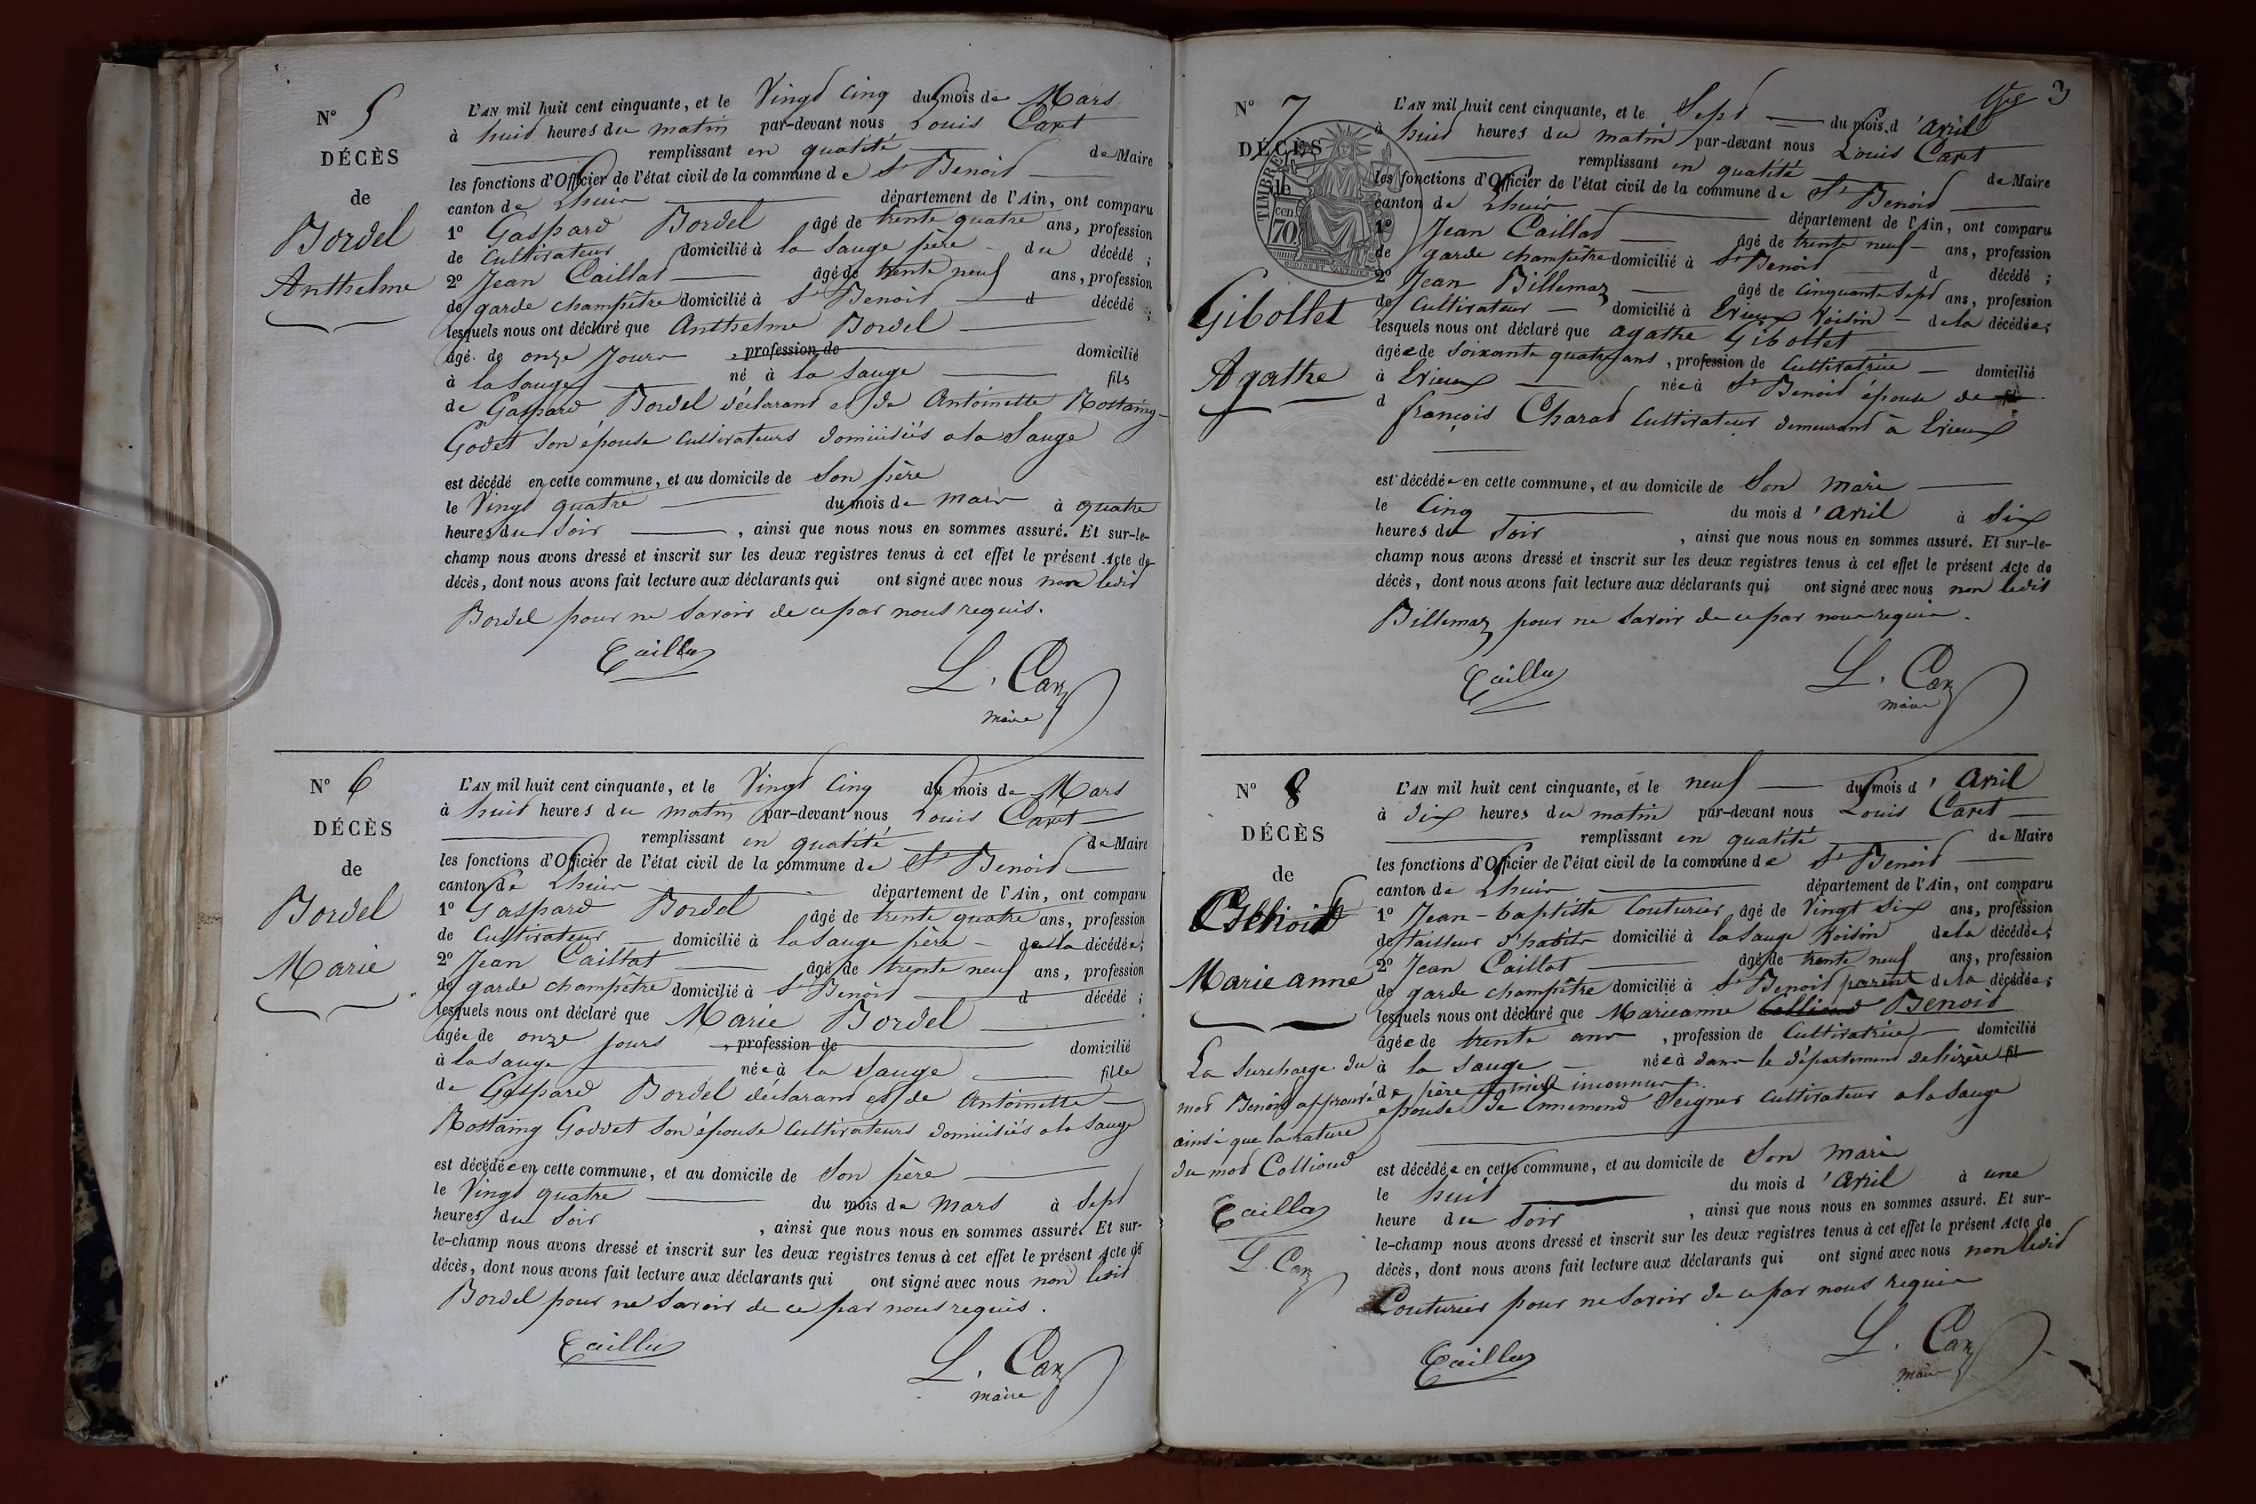 N° 5
DÉCÈS
de
Bordel
Anthelme
L'AN mil huit cent cinquante, et le Vingt Cinq du mois de Mars
à huit heures du matin par-devant nous Louis Caret
remplissant en qualité de Maire
les fonctions d'Officier de l'état civil de la commune de St Benoit
canton de Lhuis département de l'Ain, ont comparu
1° Gaspard Bordel âgé de trente quatre ans, profession
de Cultivateur domicilié à la Sauge père du décédé ;
2° Jean Caillat âgé de trente neuf ans, profession
de garde champêtre domicilié à St Benoit d décédé ;
lesquels nous ont déclaré que Anthelme Bordel
âgé de onze Jours , profession de domicilié
à la Sauge né à la Sauge fils
de Gaspard Bordel déclarant et de Antoinette Rostaing
Godet son épouse Cultivateurs domiciliés a la Sauge
est décédé en cette commune, et au domicile de Son père
le Vingt quatre du mois de mars à quatre
heures du Soir , ainsi que nous nous en sommes assuré. Et sur-le-
champ nous avons dressé et inscrit sur les deux registres tenus à cet effet le présent Acte de
décès, dont nous avons fait lecture aux déclarants qui ont signé avec nous non ledit
Bordel pour ne savoir de ce par nous requis.
Caillat
L. Caret
maire
N° 6
DÉCÈS
de
Bordel
Marie
L'AN mil huit cent cinquante, et le Vingt Cinq du mois de Mars
à huit heures du matin par-devant nous Louis Caret
remplissant en qualité de Maire
les fonctions d'Officier de l'état civil de la commune de St Benoit
canton de Lhuis département de l'Ain, ont comparu
1° Gaspard Bordel âgé de trente quatre ans, profession
de Cultivateur domicilié à la Sauge père de la décédée ;
2° Jean Caillat âgé de trente neuf ans, profession
de garde champêtre domicilié à St Benoit d décédé ;
lesquels nous ont déclaré que Marie Bordel
âgée de onze jours , profession de domicilié
à la Sauge née à la Sauge fille
de Gaspard Bordel déclarant et de Antoinette
Rostaing Goddet son épouse Cultivateurs domiciliés a la Sauge
est décédée en cette commune, et au domicile de Son père
le Vingt quatre du mois de Mars à Sept
heures du Soir , ainsi que nous nous en sommes assuré. Et sur-
le-champ nous avons dressé et inscrit sur les deux registres tenus à cet effet le présent Acte de
décès, dont nous avons fait lecture aux déclarants qui ont signé avec nous non ledit
Bordel pour ne savoir de ce par nous requis.
Caillat
L. Caret
maire
3
N° 7
DÉCÈS
de
TIMBRE
70
cen
Gibollet
Agathe
L'AN mil huit cent cinquante, et le Sept du mois d'avril
à huit heures du matin par-devant nous Louis Caret
remplissant en qualité de Maire
les fonctions d'Officier de l'état civil de la commune de St Benoit
canton de Lhuis département de l'Ain, ont comparu
1° Jean Caillat âgé de trente neuf ans, profession
de garde champêtre domicilié à St Benoit d décédé ;
2° Jean Billemaz âgé de Cinquante Sept ans, profession
de Cultivateur domicilié à Evieux Voisin de la décédée ;
lesquels nous ont déclaré que agathe Gibollet
âgée de Soixante quatre ans , profession de Cultivatrice domicilié
à Evieux née à St Benoit épouse de
d françois Charat Cultivateur demeurant à Evieux
est décédée en cette commune, et au domicile de Son mari
le Cinq du mois d'avril à Six
heures du Soir , ainsi que nous nous en sommes assuré. Et sur-le-
champ nous avons dressé et inscrit sur les deux registres tenus à cet effet le présent Acte de
décès, dont nous avons fait lecture aux déclarants qui ont signé avec nous non ledit
Billemaz pour ne savoir de ce par nous requis.
Caillat
L. Caret
maire
N° 8
DÉCÈS
de
Marie anne
La Surcharge du
mot Benoit approuvé
ainsi que la rature
du mot Collioud
Caillat
L. Caret
L'AN mil huit cent cinquante, et le neuf du mois d'avril
à dix heures du matin par-devant nous Louis Caret
remplissant en qualité de Maire
les fonctions d'Officier de l'état civil de la commune de St Benoit
canton de Lhuis département de l'Ain, ont comparu
1° Jean-baptiste Couturier âgé de Vingt Six ans, profession
de tailleur d'habits domicilié à la Sauge Voisin de la décédée ;
2° Jean Caillat âgé de trente neuf ans, profession
de garde champêtre domicilié à St Benoit parent de la décédée ;
lesquels nous ont déclaré que Marieanne Collioud Benoit
âgée de trente ans , profession de Cultivatrice domicilié
à la Sauge née à dans le département de lizère fil
de père et mère inconnus
épouse de Ennemond Seigner Cultivateur a la Sauge
est décédée en cette commune, et au domicile de Son mari
le huit du mois d'avril à une
heure du Soir , ainsi que nous nous en sommes assuré. Et sur-
le-champ nous avons dressé et inscrit sur les deux registres tenus à cet effet le présent Acte de
décès, dont nous avons fait lecture aux déclarants qui ont signé avec nous non ledit
Couturier pour ne savoir de ce par nous requis
Caillat
L. Caret
maire